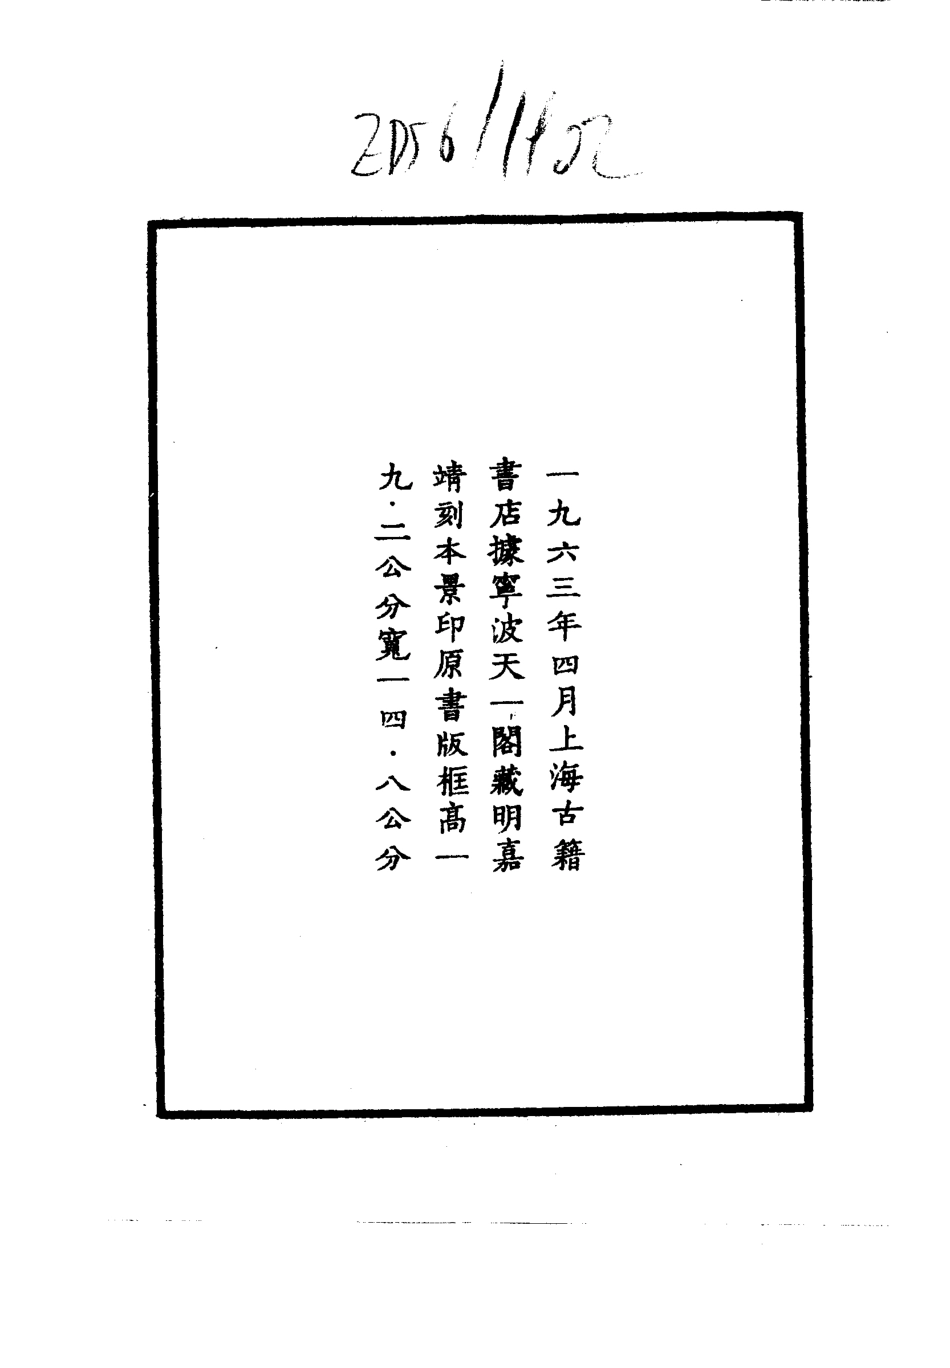 ZD56/1402
一九六三年四月上海古籍
書店據寧波天一閣藏明嘉
靖刻本景印原書版框高一
九·二公分寬一四·八公分